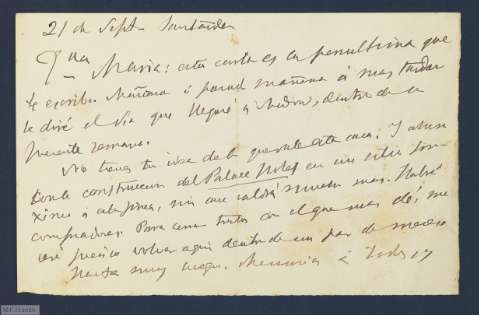 21 de Sept. Santander
Qda María: esta carta es la penultima que
te escribo. Mañana ó pasado mañana á mas tardar
te diré el dia que llegaré á Madrid, dentro de la
presente semana.
No tienes tu idea de lo que vale esta casa. Y ahora
con la construccion del Palace Hotel en un sitio
, sin que saldrá mas. Habrá
compradores. Para con el que mas dé, me
será preciso volver aqui dentro de un par de meses
Hasta muy luego. Memorias á todos